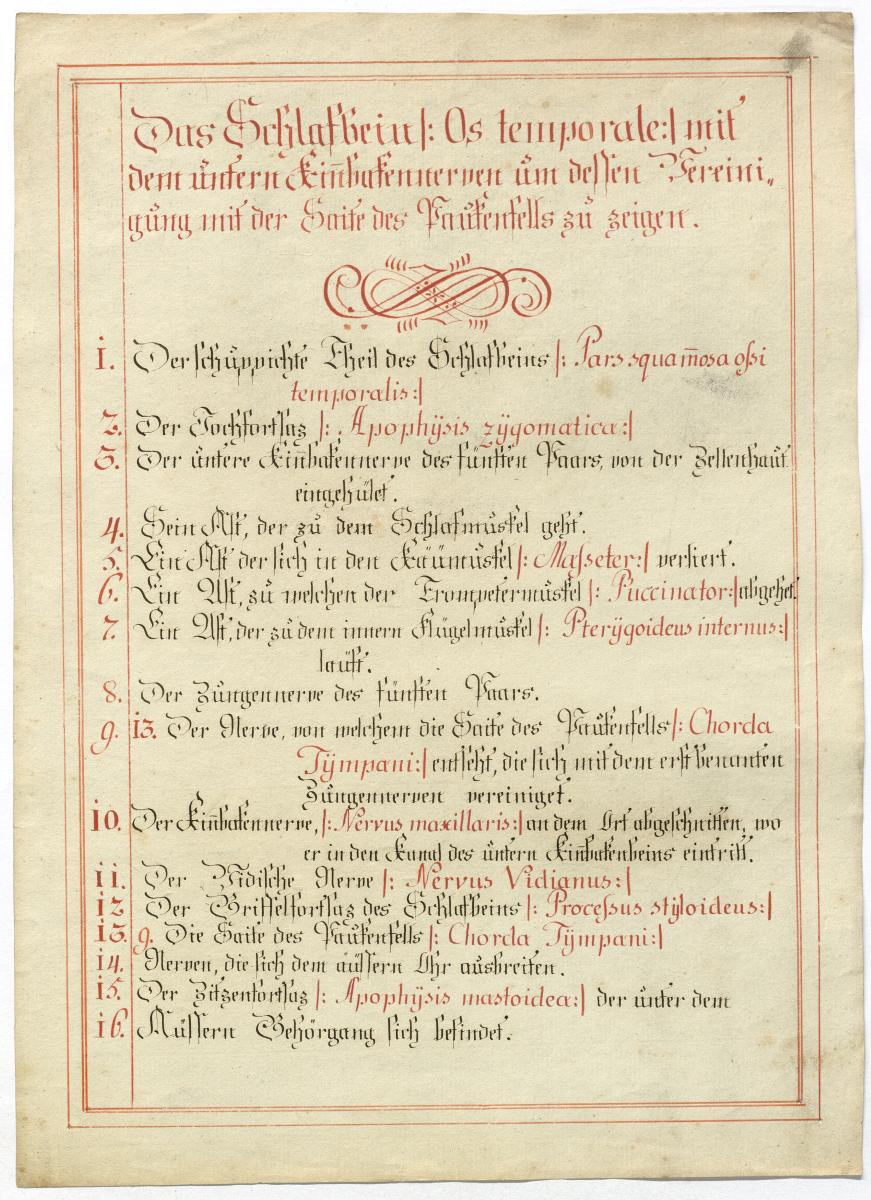 Das Schlafbein |: Os temporale :| mit
dem untern Kin̄bakennerven um dessen Vereini„
gung mit der Saite des Paukenfells zu zeigen.
1. Der schuppichte Theil des Schlafbeins |: Pars squam̄osa ossi
temporalis :|
2. Der Jochfortsaz |: Apophÿsis zÿgomatica :|
3. Der untere Kin̄bakennerve des fünften Paars, von der Zellenhaut
eingehület.
4. Sein Ast, der zu dem Schlafmuskel geht.
5. Ein Ast der sich in den Käumuskel |: Masseter :| verliert.
6. Ein Ast, zu welchen der Trompetermuskel |: Buccinator :| abgehet.
7. Ein Ast, der zu dem innern Flügelmuskel |: Pterÿgoideus internus :|
lauft.
8. Der Zungennerve des fünften Paars.
9. 13. Der Nerve, von welchem die Saite des Paukenfells |: Chorda
Tÿmpani :| entseht, die sich mit dem erst benanten
Zungennerven vereiniget.
10. Der Kin̄bakennerve, |: Nervus maxillaris :| an dem Ort abgeschnitten, wo
er in den Kanal des untern Kin̄bakenbeins eintritt.
11. Der Vidische Nerve |: Nervus Vidianus :|
12 Der Griffelfortsaz des Schlafbeins |: Processus stÿloideus :|
13. 9. Die Saite des Paukenfells |: Chorda Tÿmpani :|
14. Nerven, die sich dem äussern Ohr ausbreiten.
15. Der Zitzenfortsaz |: Apophÿsis mastoidea :| der unter dem
16. Äussern Gehörgang sich befindet.